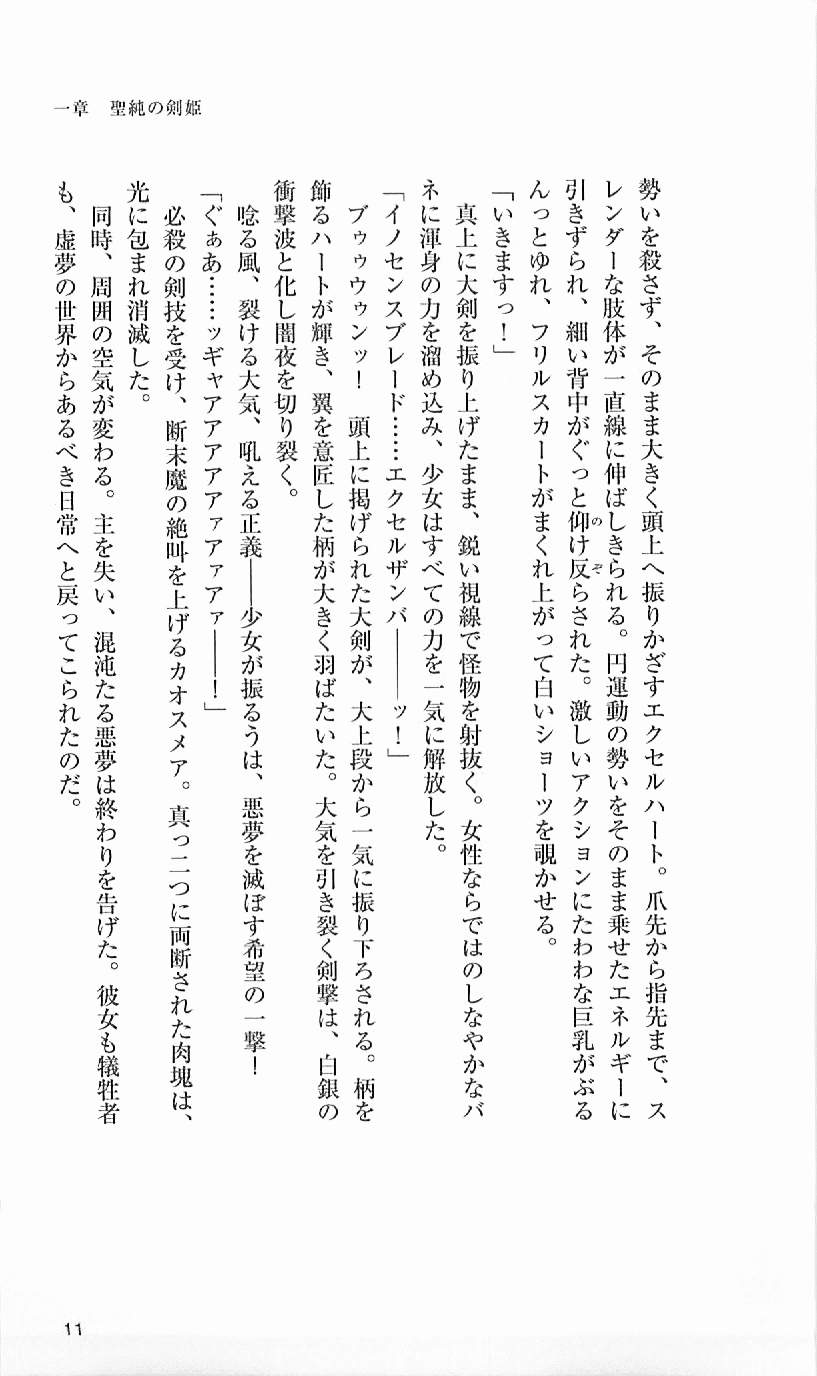 一章　聖純の剣姫
勢いを殺さず、そのまま大きく頭上へ振りかざすエクセルハート。爪先から指先まで、ス
レンダーな肢体が一直線に伸ばしきられる。円運動の勢いをそのまま乗せたエネルギーに
引きずられ、細い背中がぐっと仰け反らされた。激しいアクションにたわわな巨乳がぶる
んっとゆれ、フリルスカートがまくれ上がって白いショーツを覗かせる。
「いきますっ！」
　真上に大剣を振り上げたまま、鋭い視線で怪物を射抜く。女性ならではのしなやかなバ
ネに渾身の力を溜め込み、少女はすべての力を一気に解放した。
「イノセンスブレード……エクセルザンバ――ッ！」
　ブゥゥウゥンッ！　頭上に掲げられた大剣が、大上段から一気に振り下ろされる。柄を
飾るハートが輝き、翼を意匠した柄が大きく羽ばたいた。大気を引き裂く剣撃は、白銀の
衝撃波と化し闇夜を切り裂く。
　唸る風、裂ける大気、吼える正義――少女が振るうは、悪夢を滅ぼす希望の一撃！
「ぐぁあ……ッギャアアアアアァアァアァ――！」
　必殺の剣技を受け、断末魔の絶叫を上げるカオスメア。真っ二つに両断された肉塊は、
光に包まれ消滅した。
　同時、周囲の空気が変わる。主を失い、混沌たる悪夢は終わりを告げた。彼女も犠牲者
も、虚夢の世界からあるべき日常へと戻ってこられたのだ。
11